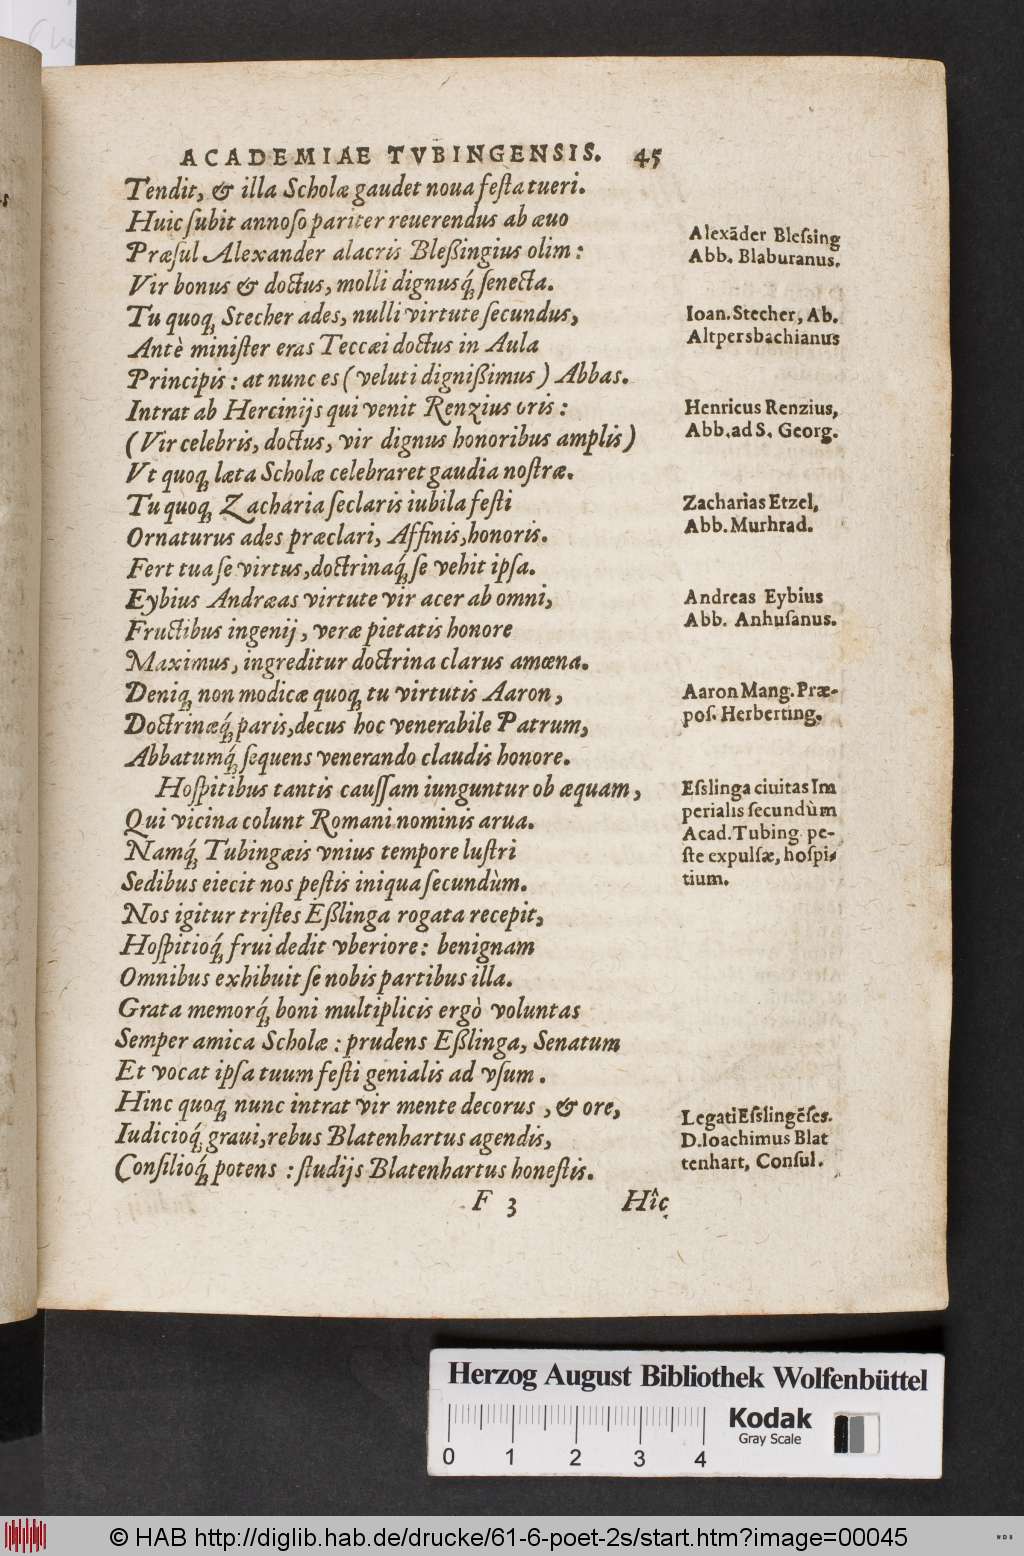 ACADEMIAE TVBINGENSIS. 45
Tendit, & illa Scholæ gaudet noua festa tueri.
Huic ſubit annoſo pariter reuerendus ab æuo
Præſul Alexander alacris Bleßingius olim:
Vir bonus & doctus, molli dignusq́; ſenecta.
Tu quoq; Stecher ades, nulli virtute ſecundus,
Antè miniſter eras Teccæi doctus in Aula
Principis: at nunc es (veluti dignißimus) Abbas.
Intrat ab Hercinijs qui venit Renzius oris:
(Vir celebris, doctus, vir dignus honoribus amplis)
Vt quoq; læta Scholæ celebraret gaudia noſtræ.
Tu quoq; Zacharia ſeclaris iubila feſti
Ornaturus ades præclari, Affinis, honoris.
Fert tua ſe virtus, doctrinaq́; ſe vehit ipſa.
Eybius Andræas virtute vir acer ab omni,
Fructibus ingenij, veræ pietatis honore
Maximus, ingreditur doctrina clarus amœna.
Deniq; non modicæ quoq; tu virtutis Aaron,
Doctrinæq́; paris, decus hoc venerabile Patrum,
Abbatumq́; ſequens venerando claudis honore.
Hoſpitibus tantis cauſſam iunguntur ob æquam,
Qui vicina colunt Romani nominis arua.
Namq́; Tubingæis vnius tempore luſtri
Sedibus eiecit nos peſtis iniqua ſecundùm.
Nos igitur triſtes Eßlinga rogata recepit,
Hoſpitioq́; frui dedit vberiore: benignam
Omnibus exhibuit ſe nobis partibus illa.
Grata memorq́; boni multiplicis ergò voluntas
Semper amica Scholæ: prudens Eßlinga, Senatum
Et vocat ipſa tuum feſti genialis ad vſum.
Hinc quoq; nunc intrat vir mente decorus, & ore,
Iudicioq́; graui, rebus Blatenhartus agendis,
Conſilioq́; potens: ſtudijs Blatenhartus honeſtis.
F 3 Hîc
Alexāder Bleſsing
Abb. Blaburanus.
Ioan. Stecher, Ab.
Altpersbachianus
Henricus Renzius,
Abb. ad S. Georg.
Zacharias Etzel,
Abb. Murhrad.
Andreas Eybius
Abb. Anhuſanus.
Aaron Mang. Præ-
poſ. Herberting.
Eſslinga ciuitas Im
perialis ſecundùm
Acad. Tubing. pe-
ſte expulſæ, hoſpi-
tium.
Legati Eſslingēſes.
D. Ioachimus Blat
tenhart, Conſul.
Herzog August Bibliothek Wolfenbüttel
Kodak
Gray Scale
0 1 2 3 4
© HAB http://diglib.hab.de/drucke/61-6-poet-2s/start.htm?image=00045